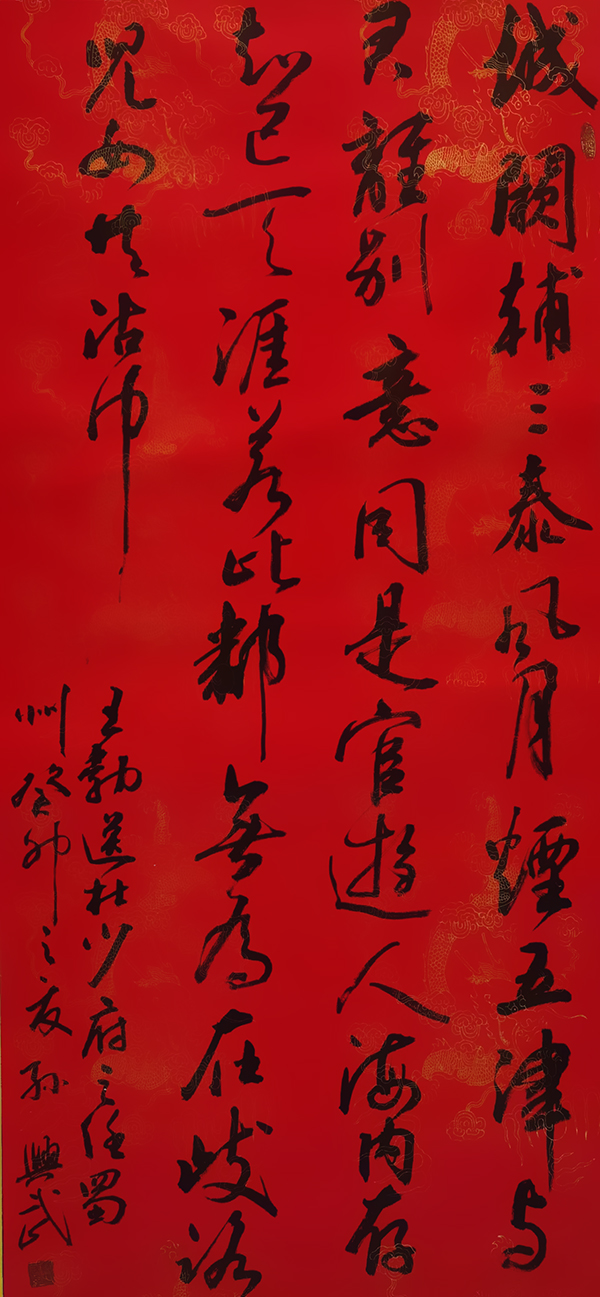 城闕輔三秦风月煙五津与
君離别意同是官遊人海内存
知己天涯若比鄰無為在歧路
兒女共沾巾
王勃送杜少府之任蜀
州癸卯之夏孙興武